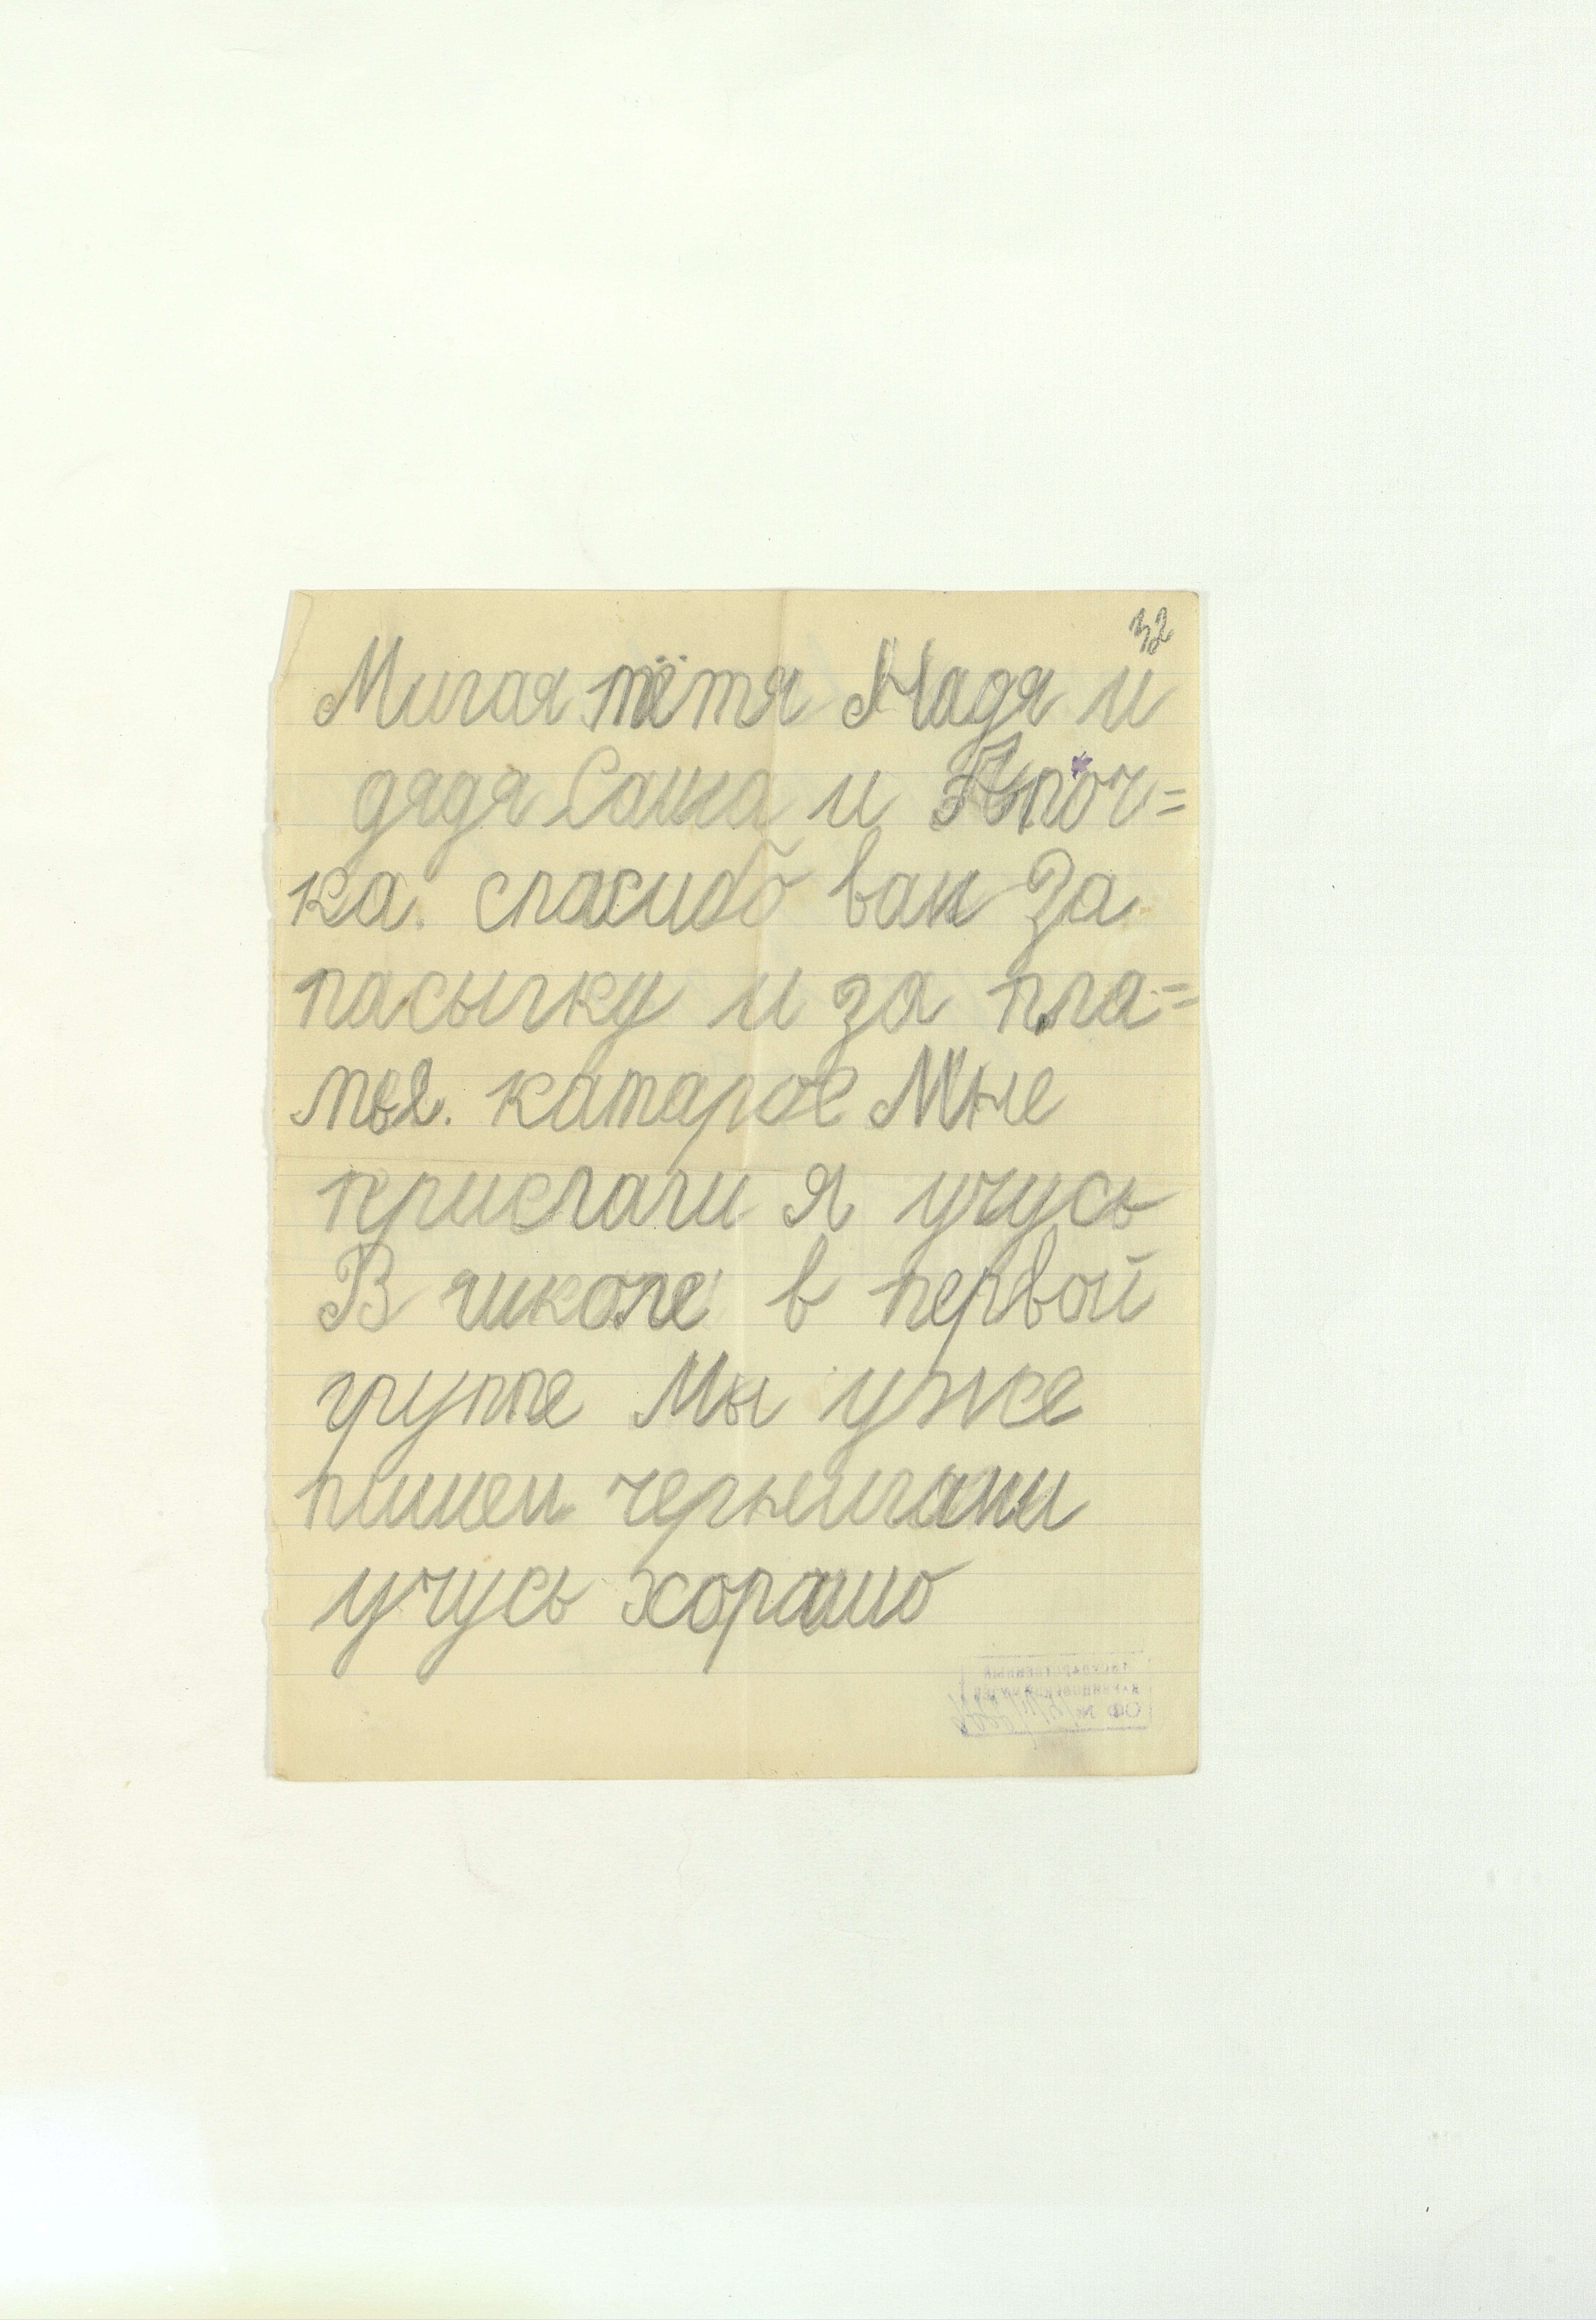 32
Милая тётя Надя и
дядя Саша и
ка. спасибо вам За
пасылку и за пла=
тья. катарое Мне
прислали Я учусь
В школе в первой
группе Мы уже
пишем чернилами
учусь хорашо